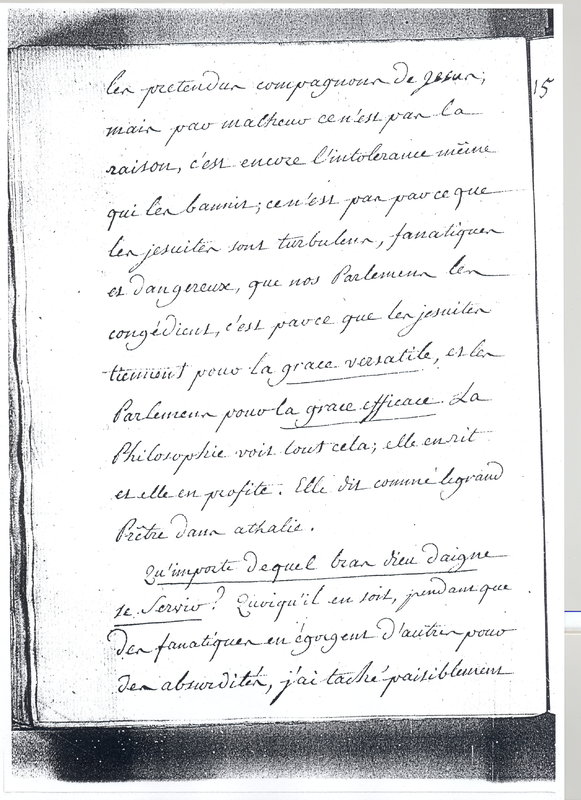 15
les pretendus compagnons de Jesus;
mais par malheur ce n'est par la
raison, c'est encore l'intolerance même
qui les bannit; ce n'est pas parce que
les jesuites sont turbulens, fanatiques
et dangereux, que nos Parlemens les
congédient, c'est parce que les jesuites
tiennent pour la grace versatile, et les
Parlemens pour la grace efficace. La
Philosophie voit tout cela; elle en rit
et elle en profite. Elle dit comme le grand
Prêtre dans athalie.
Qu'importe de quel bras dieu daigne
se Servir? Quoiqu'il en soit, pendant que
des fanatiques en égorgent d'autres pour
des absurdités, j'ai taché paisiblement